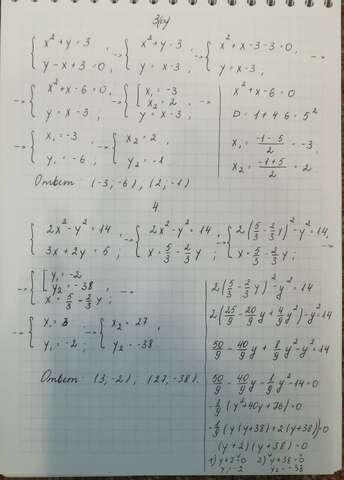 3(б)
{ x²+y=3 , y-x+3=0; → { x²+y=3 , y=x-3 ; → { x²+x-3-3=0, y=x-3, →
→ { x²+x-6=0, y=x-3 ; → { [ x₁=-3 x₂=2 , y=x-3 ;
x²+x-6=0
D=1+4·6=5²
x₁ = (-1-5)/2 = -3,
x₂ = (-1+5)/2 = 2.
{ x₁=-3, y₁=-6, → { x₂=2, y₂=-1.
Ответ: (-3,-6), (2,-1)
4.
{ 2x²-y²=14, 3x+2y=5; → { 2x²-y²=14, x=5/3-2/3y ; → { 2(5/3-2/3y)²-y²=14, x=5/3-2/3y ; →
→ { [ y₁=-2 y₂=-38 x=5/3-2/3y ;
→ { x₁=3 y₁=-2, → { x₂=27, y₂=-38.
Ответ: (3,-2), (27,-38).
2(5/3-2/3y)²-y²=14
2(25/9-20/9y+4/9y²)-y²=14
50/9-40/9y+8/9y²-y²=14
50/9-40/9y-1/9y²-14=0
-1/9(y²+40y+76)=0
-1/9(y(y+38)+2(y+38))=0
(y+2)(y+38)=0
1) y+2=0 2) y+38=0
y₁=-2 y₂=-38